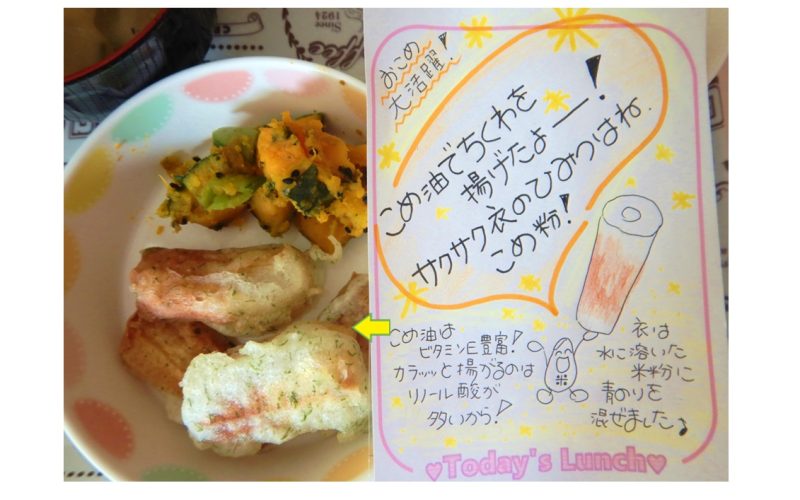 Since
1924
Coffee
おこめ
大活躍!
こめ油でちくわを
揚げたよー!
サクサク衣のひみつはね、
こめ粉!
こめ油は
ビタミンE豊富!
カラッッと揚がるのは
リノール酸が
多いから!
米
衣は
水に溶いた
米粉に
青のりを
混ぜました♪
♥Today's Lunch♥